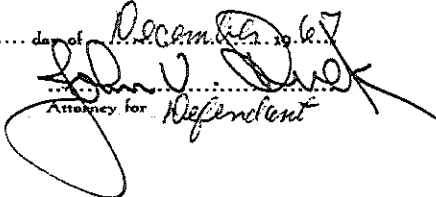 .... day of December 1967
John V.
Attorney for Defendant